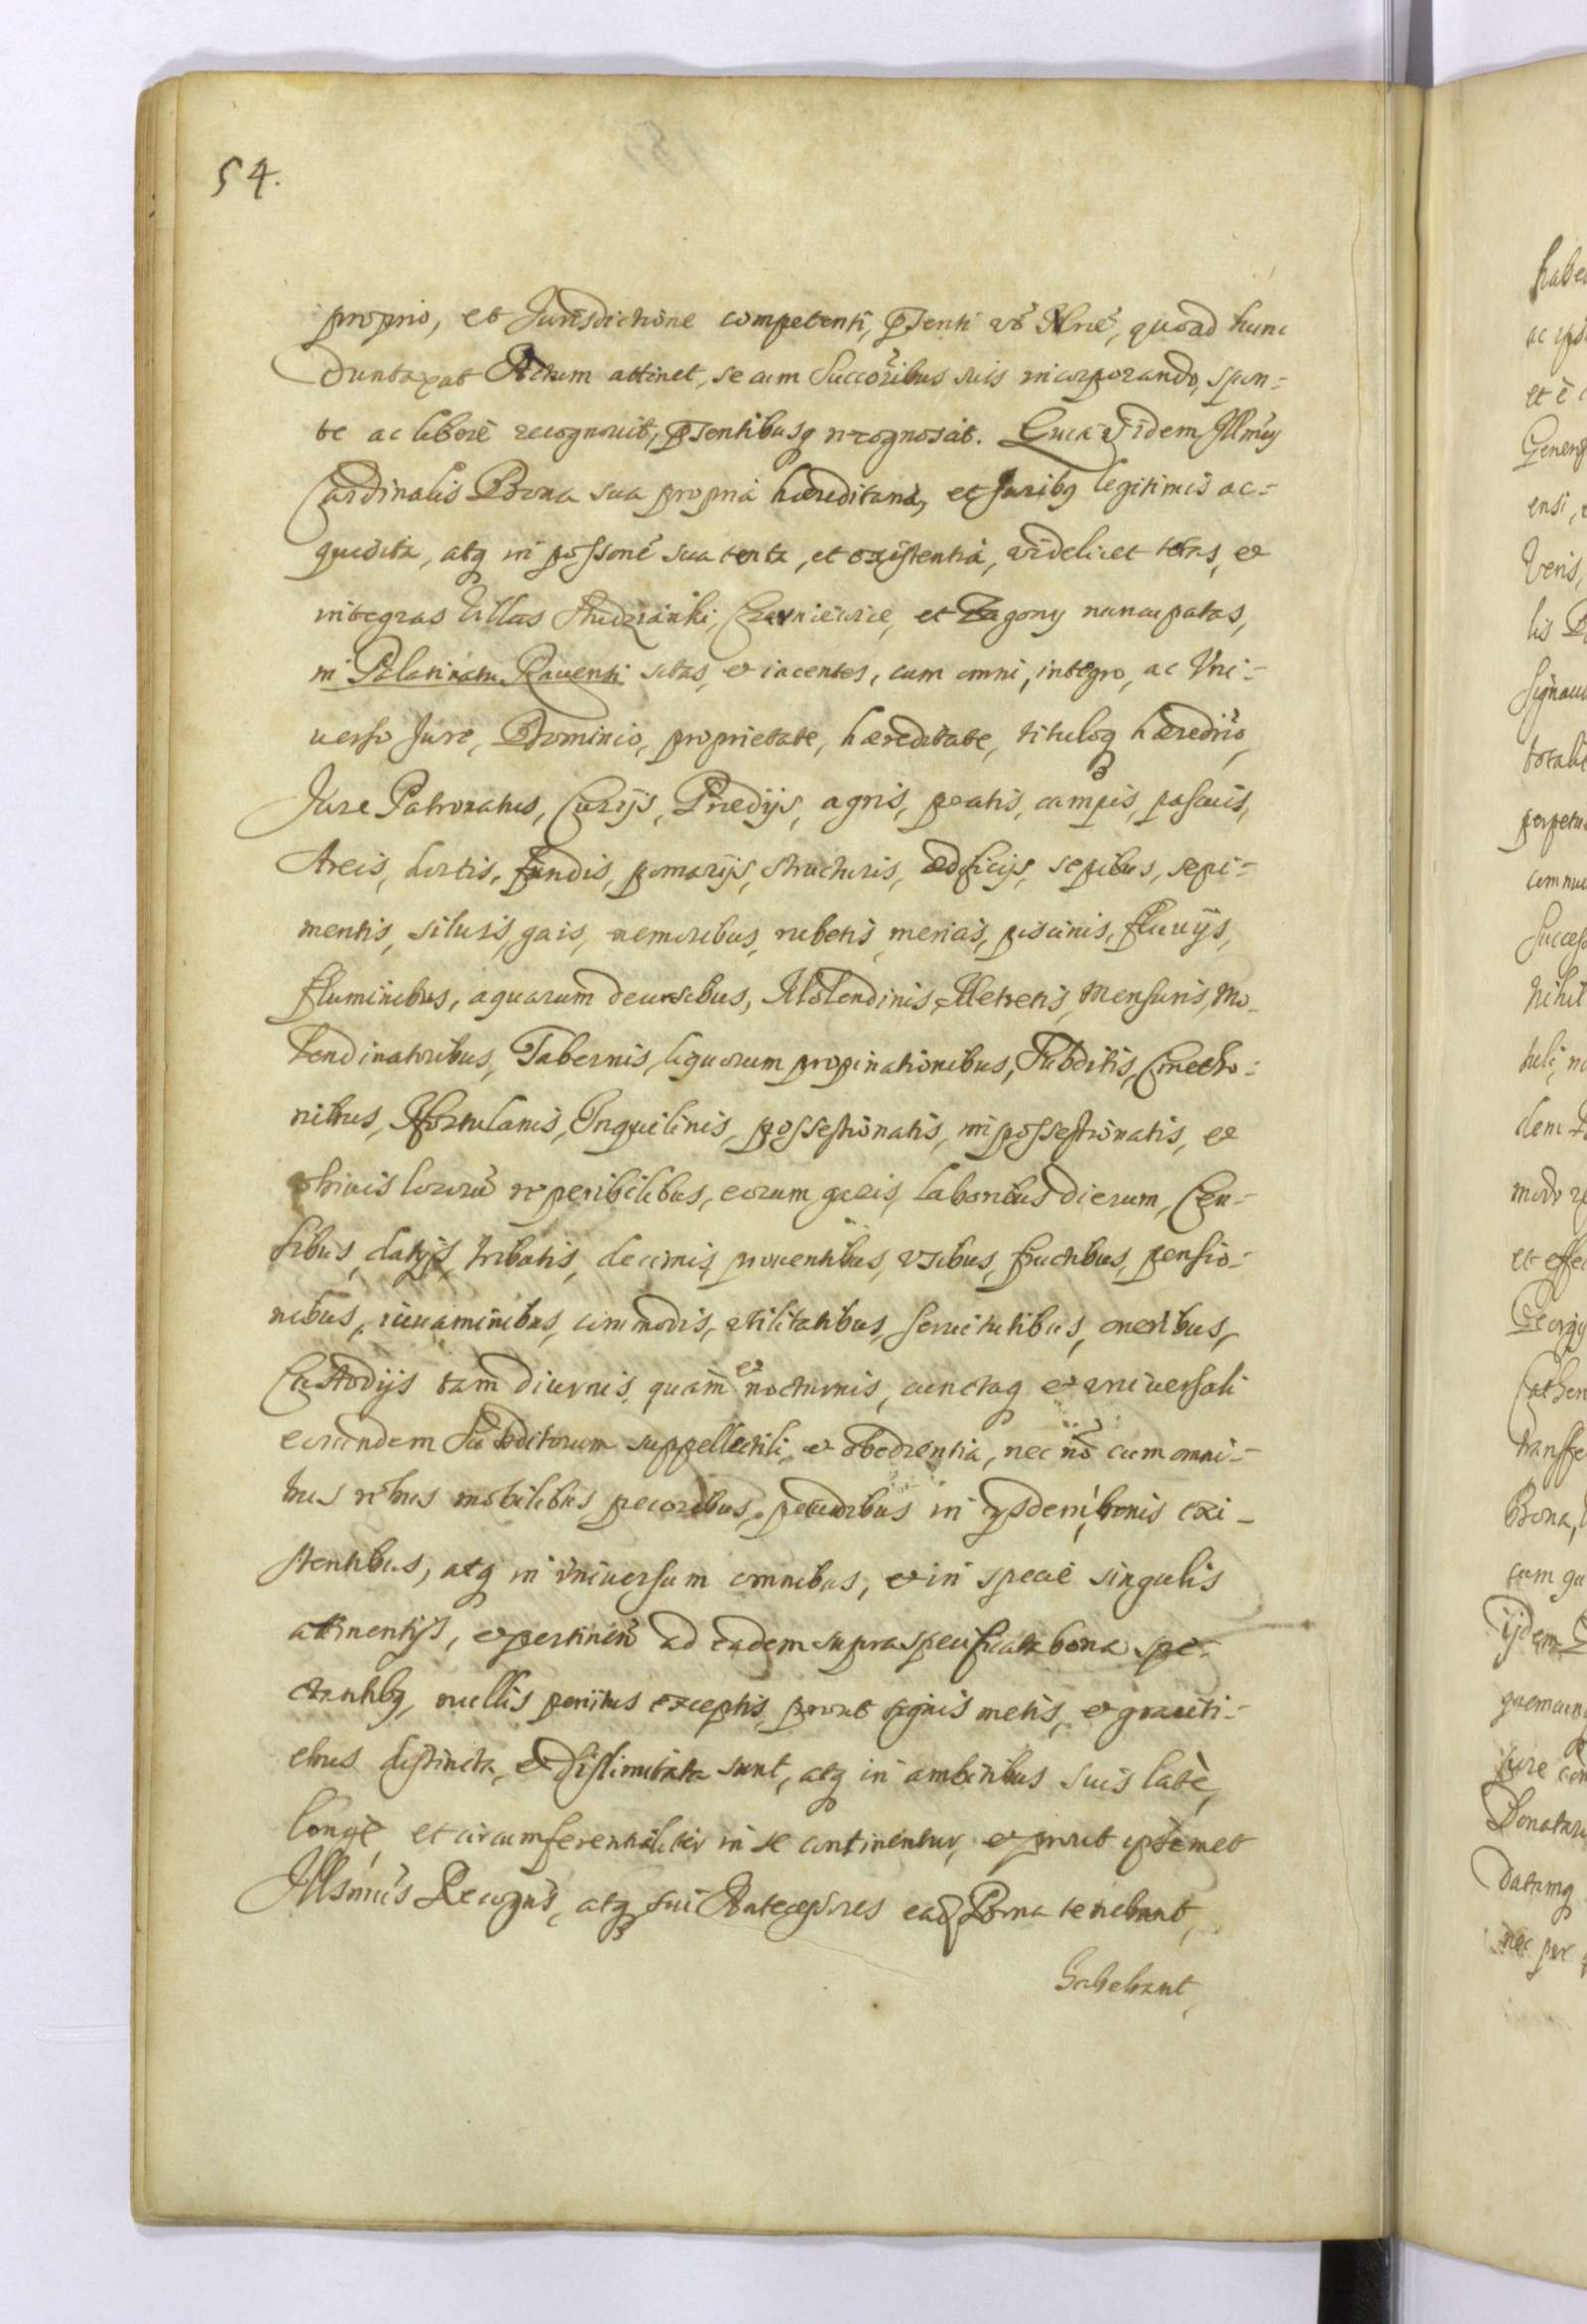 54.
proprio, et Jurisdictione competenti, pnti vero Alne, quoad hunc
duntaxat Actum attinet, se cum Succoribus suis incorporando, spon-
te ac libere recognovit, pntibusq recognoscit. Quia Idem Illmus
Cardinalis Bona sua propria haereditaria, et Juribq legitimis ac-
quisita, atq in possone sua tenta, et existentia, videlicet totas, et
integras Villas Studzianki, Czerniewice, et Zagony nuncupatas,
in Palatinatu Raventi sitas, et iacentes, cum omni, integro, ac Vni-
uerso Jure, Dominio, proprietate, haereditate, tituloq haeredrio,
Jure Patronatus, Curijs, Praedijs, agris, pratis, campis, pascuis,
Areis, hortis, fundis, pomarijs, structuris, aedificijs, sepibus, sepi-
mentis, siluis, gais, nemoribus, rubetis, mericis, piscinis, fluuijs,
fluminibus, aquarum decursibus, Molendinis, Metretis, Mensuris, Mo-
lendinatoribus, Tabernis, liquorum propinationibus, Subditis, Cmetho-
nibus, Hortulanis, Inquilinis, possessionatis, impossessionatis, et
ibidem reperibilibus, eorum laboribus dierum, Cen-
sibus, datijs, tributis, decimis, prouentibus, vsibus, fructibus, pensio-
nibus, iuuaminibus, commodis, vtilitatibus, seruitutibus, oneribus,
Custodijs tam diurnis, quam et nocturnis, cunctaq et vniuersali
eorundem Subditorum suppellectili, et obedientia, nec no cum omni-
bus rebus mobilibus pecoribus, pecudibus in ijsdem bonis exi-
stentibus, atq in vniuersum omnibus, et in specie singulis
attinentijs, et pertinen ad eadem supraspecificata bona spe-
ctantibq, nullis penitus exceptis, prout signis metis, et graniti-
ebus distincta, et dislimitata sunt, atq in ambitibus suis late,
longe, et circumferentialiter in se continentur, et prout ipsemet
Illsmus Recogns, atq sui Antecessores ead Bona tenebant,
habebant,